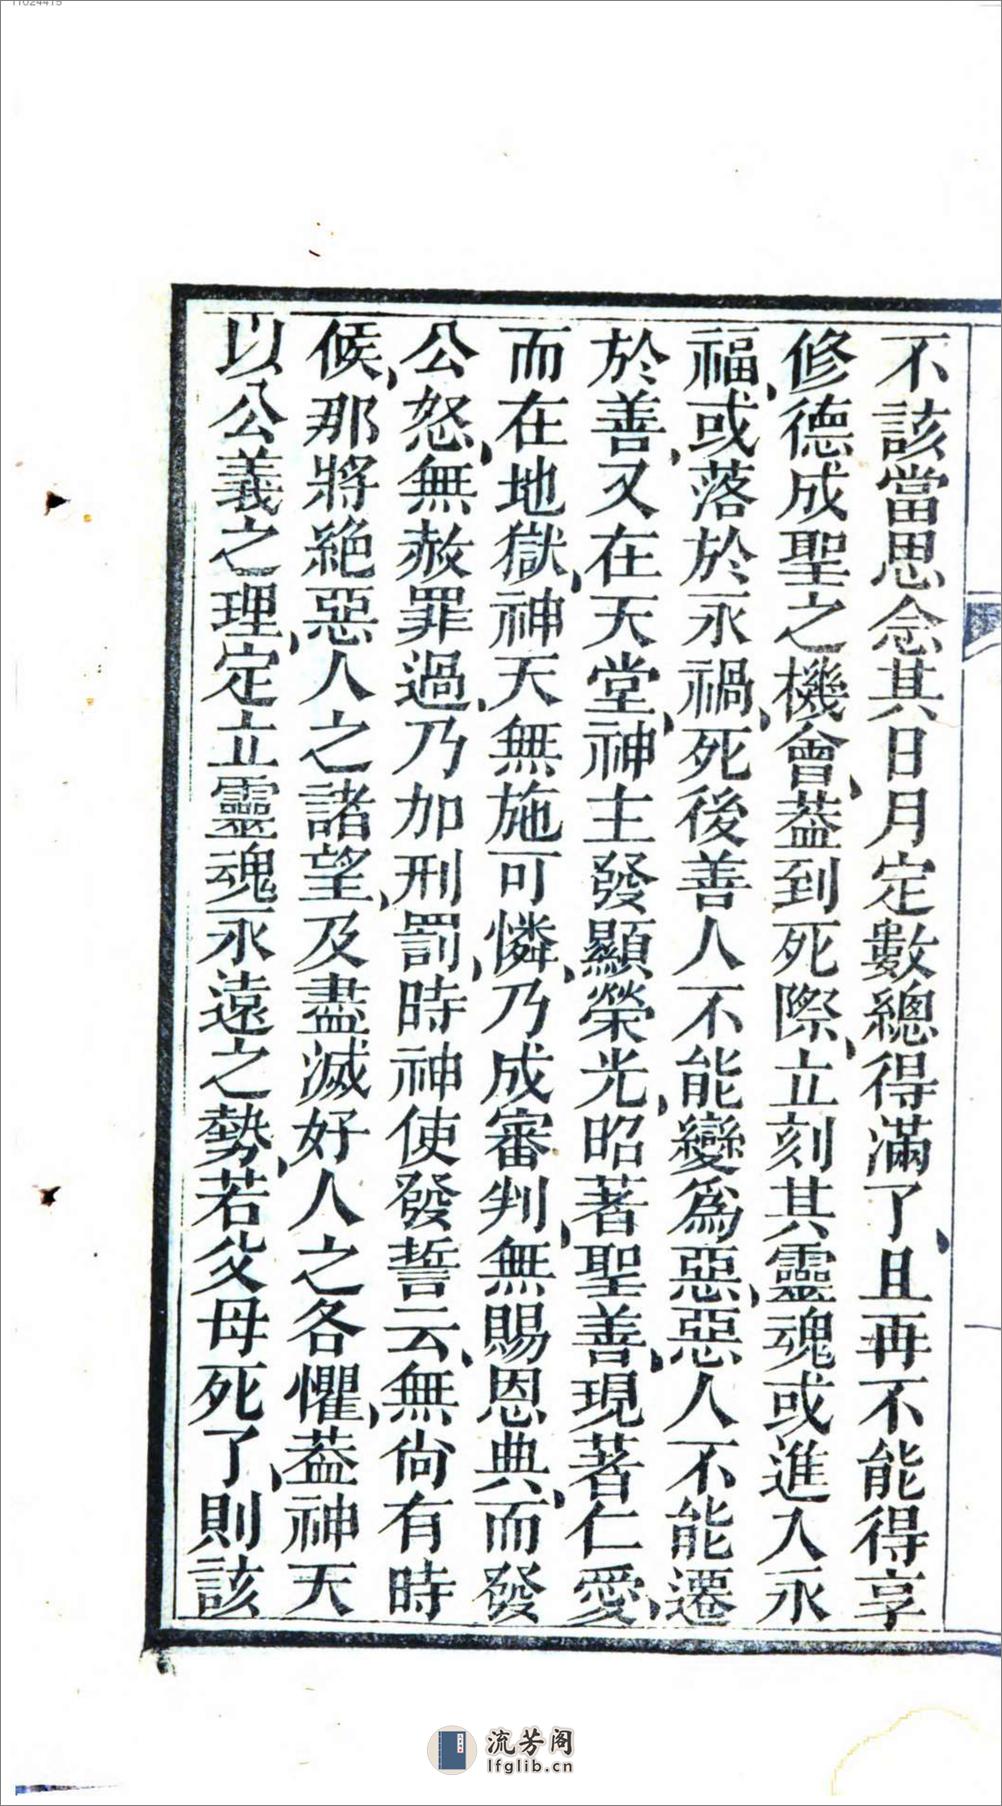 不該當思念其日月定數總得滿了、且再不能得享
修德成聖之機會、葢到死際、立刻其靈魂或進入永
福、或落於永禍、死後善人不能變為惡、惡人不能遷
於善、又在天堂神主發顯榮光、昭著聖善、現著仁愛、
而在地獄、神天無施可憐、乃成審判、無賜恩典、而發
公怒、無赦罪過、乃加刑罰、時神使發誓云、無尚有時
候、那將絕惡人之諸望、及盡滅好人之各懼、葢神天
以公義之理、定立靈魂永遠之勢、若父母死了、則該
流芳阁
lfglib.cn